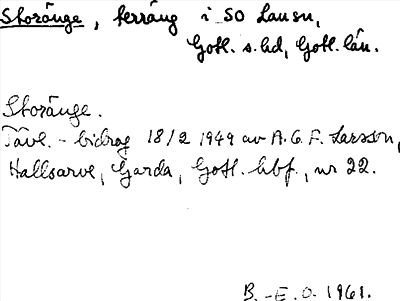 Storänge, terräng i SO Lausn,
Gotl. s. hd, Gotl. län.
Storänge.
Tävl.-bidrag 18/2 1949 av A.G.F. Larsson,
Hallsarve, Garda, Gotl. hbf., nr 22.
B.-E.O. 1961.